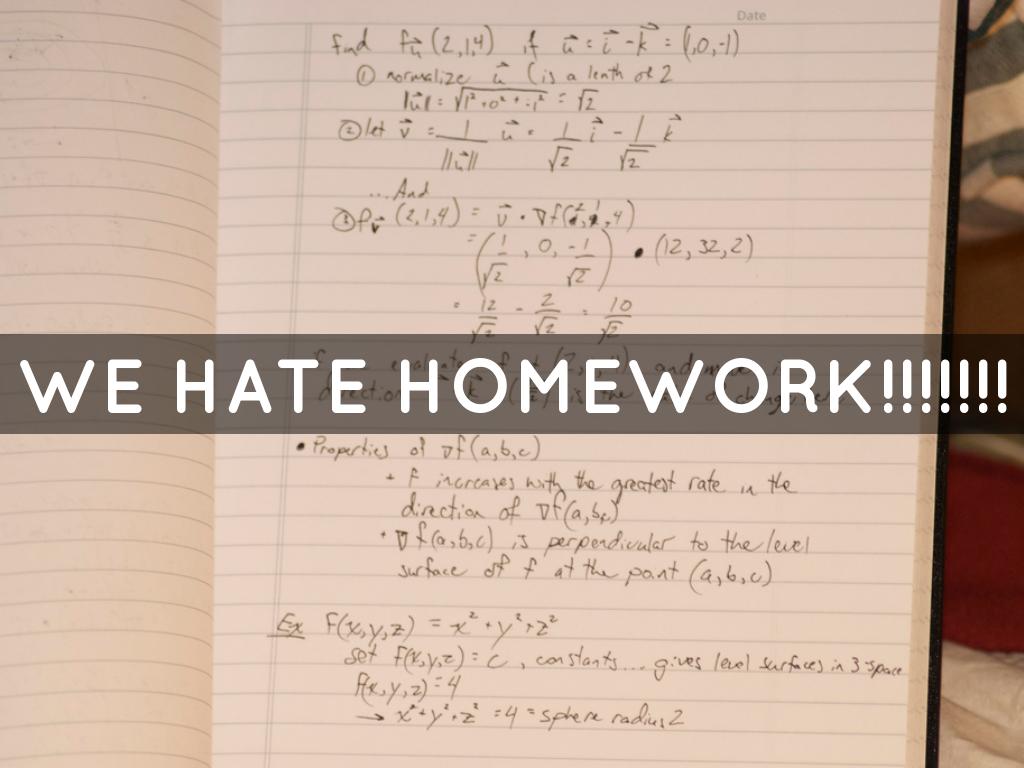 Date
find f_u⃗ (2,1,4) if u⃗ = i⃗ - k⃗ = (1,0,-1)
① normalize u⃗ (is a lenth of 2
||u⃗|| = √(1²+0²+-1²) = √2
② let v⃗ = 1/||u⃗|| u⃗ = 1/√2 i⃗ - 1/√2 k⃗
...And
③ f_v⃗ (2,1,4) = v⃗ • ∇f(2,1,4)
= (1/√2, 0, -1/√2) • (12, 32, 2)
= 12/√2 - 2/√2 = 10/√2
WE HATE HOMEWORK!!!!!!!
• Properties of ∇f(a,b,c)
+ f increases with the greatest rate in the
direction of ∇f(a,b,c)
• ∇f(a,b,c) is perpendicular to the level
surface of f at the point (a,b,c)
Ex f(x,y,z) = x² + y² + z²
set f(x,y,z) = c, constants... gives level surfaces in 3-space
f(x,y,z) = 4
→ x²+y²+z² = 4 = sphere radius 2